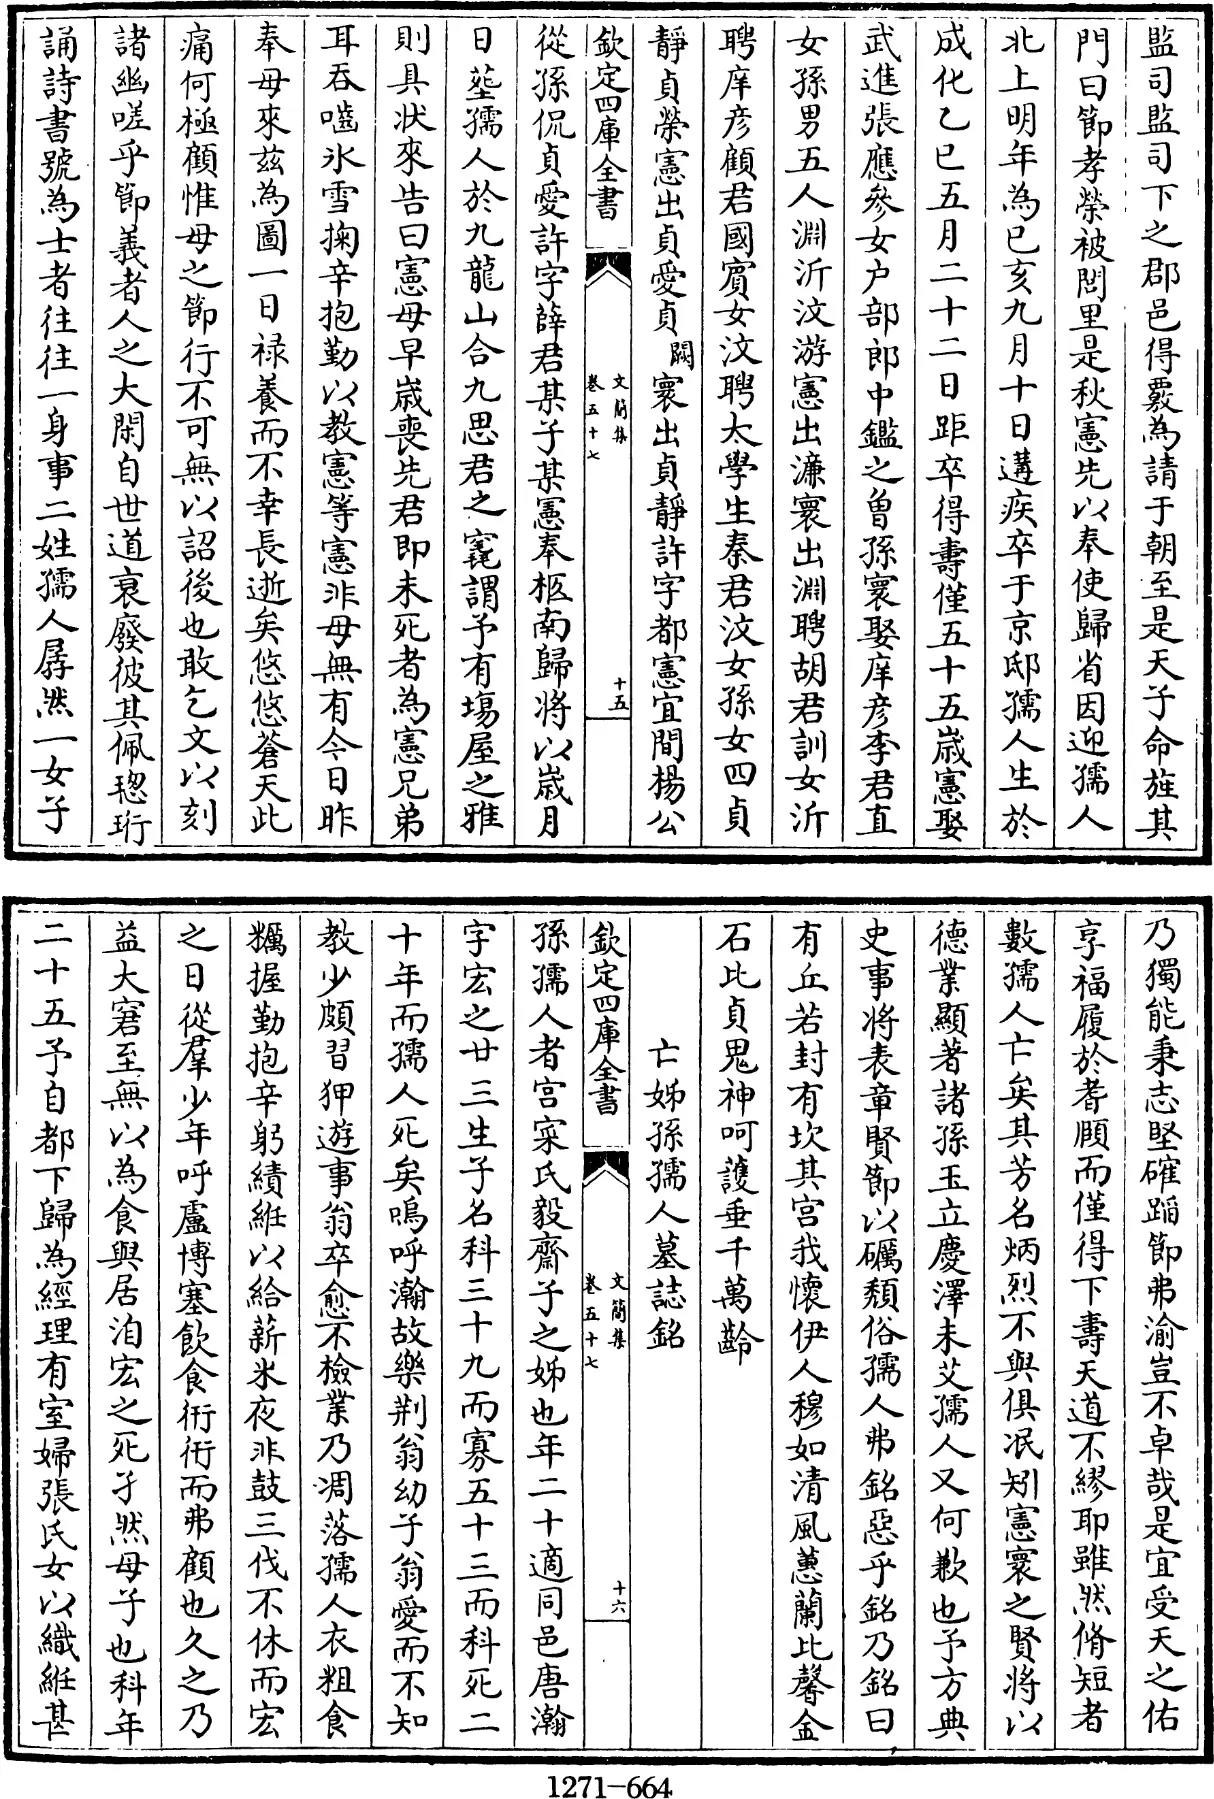 監司監司下之郡邑得覈為請于朝至是天子命旌其
門曰節孝榮被閭里是秋憲先以奉使歸省因迎孺人
北上明年為已亥九月十日遘疾卒于京邸孺人生於
成化乙巳五月二十二日距卒得壽僅五十五歲憲娶
武進張應參女户部郎中鑑之曽孫寰娶庠彦李君直
女孫男五人淵沂汶游憲出濂寰出淵聘胡君訓女沂
聘庠彦顧君國賓女汶聘太學生秦君汶女孫女四貞
靜貞榮憲出貞愛貞闕寰出貞靜許字都憲宜間楊公
欽定四庫全書
文簡集
卷五十七
十五
從孫侃貞愛許字薛君某子某憲奉柩南歸將以歲月
日塟孺人於九龍山合九思君之窆謂予有塲屋之雅
則具狀來告曰憲母早歲喪先君即未死者為憲兄弟
耳吞嚙氷雪掬辛抱勤以教憲等憲非母無有今日昨
奉母來兹為圖一日禄養而不幸長逝矣悠悠蒼天此
痛何極顧惟母之節行不可無以詔後也敢乞文以刻
諸幽嗟乎節義者人之大閑自世道衰廢彼其佩璁珩
誦詩書號為士者往往一身事二姓孺人孱然一女子
乃獨能秉志堅確蹈節弗渝豈不卓哉是宜受天之佑
享福履於耆頤而僅得下壽天道不繆耶雖然脩短者
數孺人亡矣其芳名炳烈不與俱泯矧憲寰之賢將以
德業顯著諸孫玉立慶澤未艾孺人又何歉也予方典
史事將表章賢節以礪頽俗孺人弗銘惡乎銘乃銘曰
有丘若封有坎其宫我懷伊人穆如清風蕙蘭比馨金
石比貞鬼神呵護垂千萬齡
亡姊孫孺人墓誌銘
欽定四庫全書
文簡集
卷五十七
十六
孫孺人者宫宷氏毅齋子之姊也年二十適同邑唐瀚
字宏之廿三生子名科三十九而寡五十三而科死二
十年而孺人死矣嗚呼瀚故樂荆翁幼子翁愛而不知
教少頗習狎遊事翁卒愈不檢業乃凋落孺人衣粗食
糲握勤抱辛躬績絍以給薪米夜非鼓三伐不休而宏
之日從羣少年呼盧博塞飲食衎衎而弗顧也久之乃
益大窘至無以為食與居洎宏之死孑然母子也科年
二十五予自都下歸為經理有室婦張氏女以織絍甚
1271-664